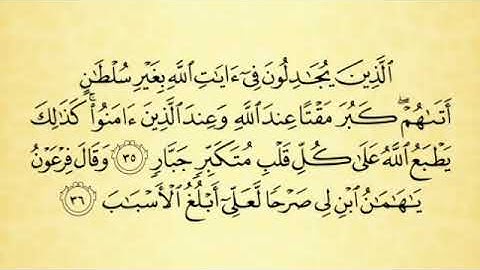 ٱلَّذِينَ يُجَٰدِلُونَ فِىٓ ءَايَٰتِ ٱللَّهِ بِغَيْرِ سُلْطَٰنٍ
أَتَىٰهُمْ ۖ كَبُرَ مَقْتًا عِندَ ٱللَّهِ وَعِندَ ٱلَّذِينَ ءَامَنُوا۟ ۚ كَذَٰلِكَ
يَطْبَعُ ٱللَّهُ عَلَىٰ كُلِّ قَلْبِ مُتَكَبِّرٍ جَبَّارٍ ٣٥ وَقَالَ فِرْعَوْنُ
يَٰهَٰمَٰنُ ٱبْنِ لِى صَرْحًا لَّعَلِّىٓ أَبْلُغُ ٱلْأَسْبَٰبَ ٣٦